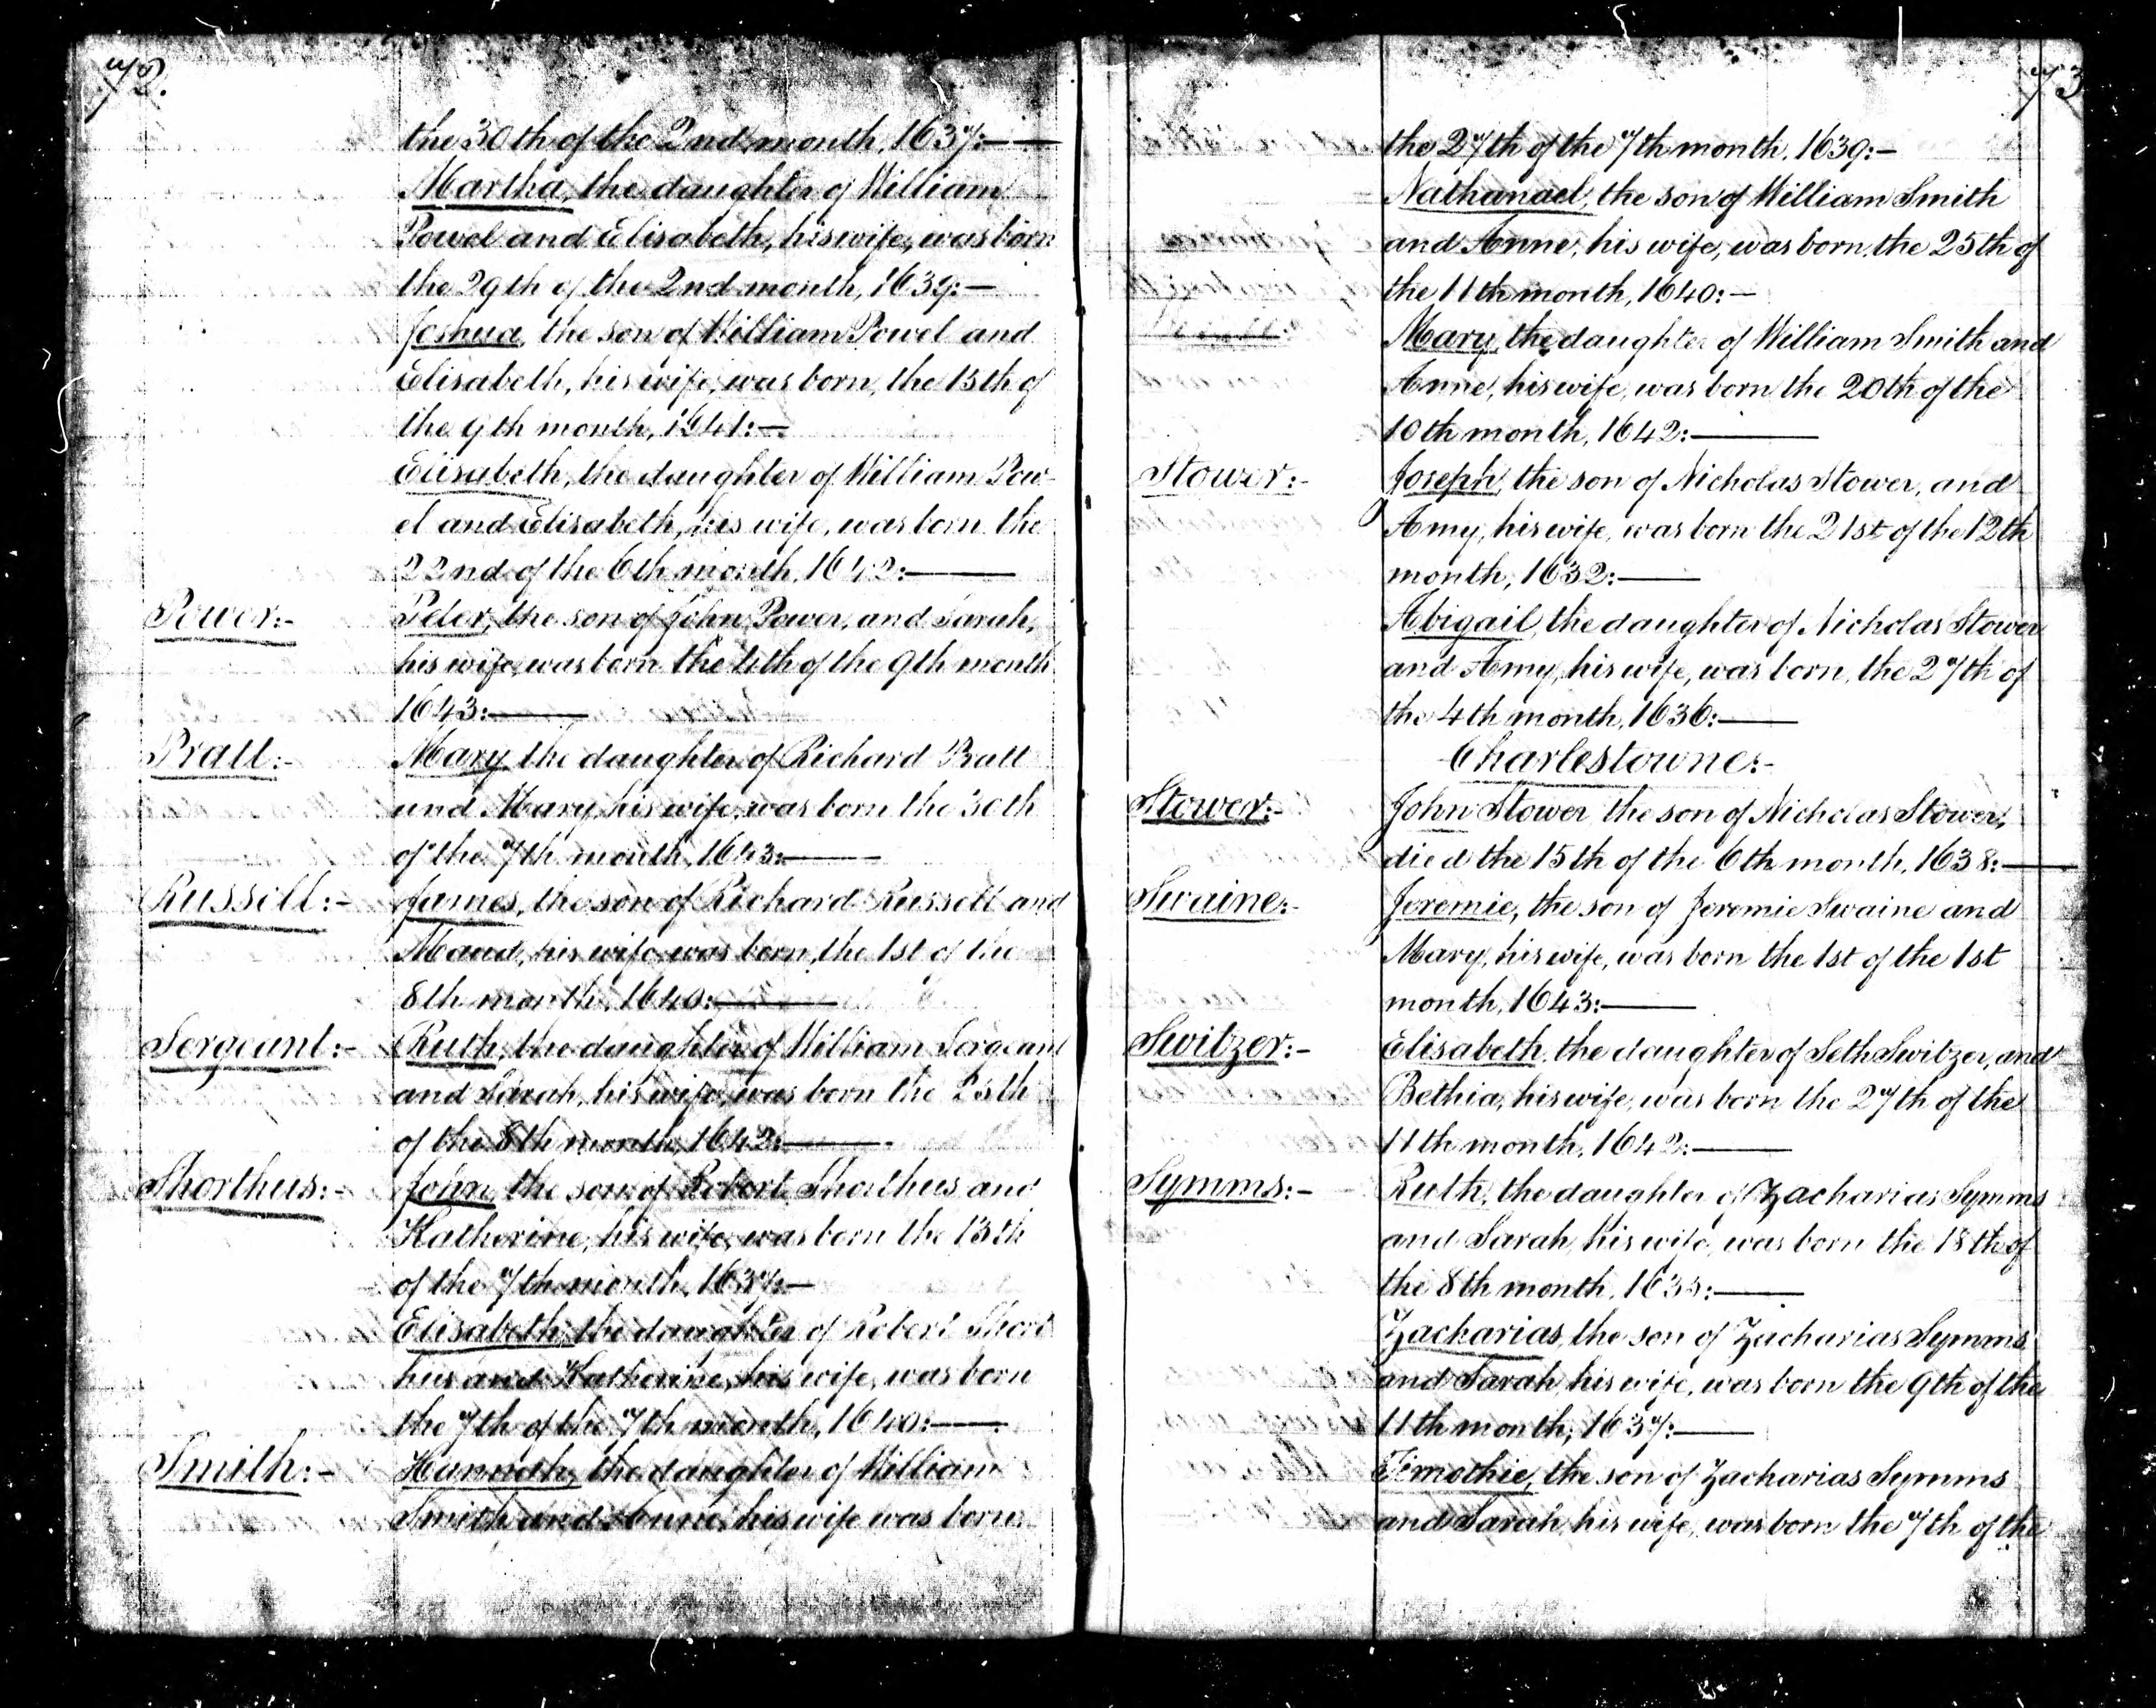 72.
the 30th of the 2nd month, 1637:—
Martha, the daughter of William
Powel and Elisabeth, his wife, was born
the 29th of the 2nd month, 1639:—
Joshua, the son of William Powel and
Elisabeth, his wife, was born, the 15th of
the 9th month, 1641:—
Elisabeth, the daughter of William Pow-
el and Elisabeth, his wife, was born the
22nd of the 6th month, 1642:—
Power:- Peter, the son of John Power, and Sarah,
his wife, was born the 4th of the 9th month
1643:—
Pratt:- Mary, the daughter of Richard Pratt
and Mary, his wife, was born the 30th
of the 7th month, 1643:—
Russell:- James, the son of Richard Russell and
Maud, his wife, was born, the 1st of the
8th month, 1640:—
Sergeant:- Ruth, the daughter of William Sergeant
and Sarah, his wife, was born the 25th
of the 8th month, 1642:—
Shorthus:- John, the son of Robert Shorthus and
Katherine, his wife, was born the 13th
of the 7th month, 1637:—
Elisabeth, the daughter of Robert Short
hus and Katherine, his wife, was born
the 7th of the 7th month, 1640:—
Smith:- Hannah, the daughter of William
Smith and Anne, his wife was born
73
the 27th of the 7th month. 1639:—
Nathanael, the son of William Smith
and Anne, his wife, was born, the 25th of
the 11th month, 1640:—
Mary, the daughter of William Smith and
Anne, his wife, was born the 20th of the
10th month, 1642:—
Stower:- Joseph, the son of Nicholas Stower, and
Amy, his wife, was born the 21st of the 12th
month, 1632:—
Abigail, the daughter of Nicholas Stower
and Amy, his wife, was born, the 27th of
the 4th month, 1636:—
Charlestowne:-
Stower:- John Stower the son of Nicholas Stower,
died the 15th of the 6th month, 1638:—
Swaine:- Jeremie, the son of Jeremie Swaine and
Mary, his wife, was born the 1st of the 1st
month, 1643:—
Switzer:- Elisabeth, the daughter of Seth Switzer, and
Bethia, his wife, was born the 27th of the
11th month, 1642:—
Symms:- Ruth, the daughter of Zacharias Symms
and Sarah, his wife, was born the 18th of
the 8th month, 1635:—
Zacharias, the son of Zacharias Symms
and Sarah, his wife, was born the 9th of the
11th month, 1637:—
Timothie, the son of Zacharias Symms
and Sarah, his wife, was born the 7th of the